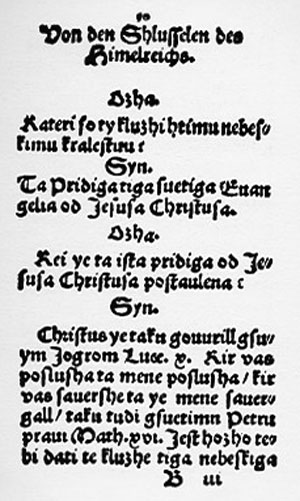 Von den Shlusselen des
Himelreichs.
Ozha.
Kateri so ty kluzhi htimu nebes-
kimu kralestuu ?
Syn.
Ta Pridiga tiga suetiga Euan
gelia od Jesusa Christusa.
Ozha.
Kei ye ta ista pridiga od Je-
susa Christusa postaulena ?
Syn.
Christus ye taku gouurill gsu-
ym Jogrom Luce. x. Kir vas
poslusha ta mene poslusha / kir
vas sauershe ta ye mene sauer-
gall / taku tudi gsuetimu Petru
praui Math. xvi. Jest hozho te-
bi dati te kluzhe tiga nebeskiga
B iii